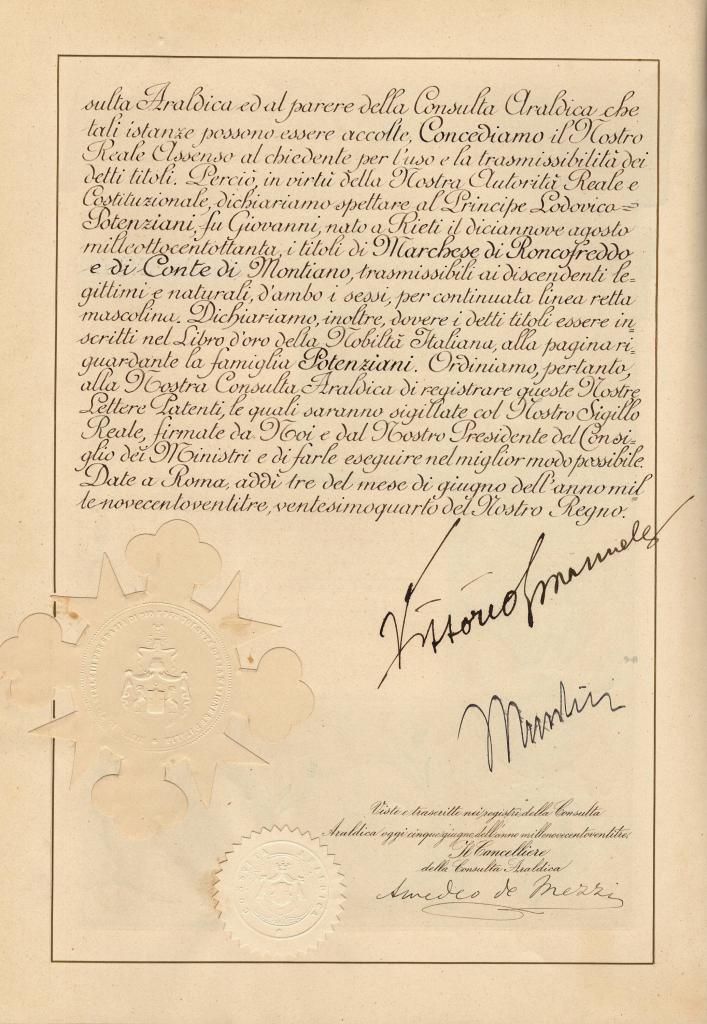 sulta Araldica ed al parere della Consulta Araldica che
tali istanze possono essere accolte, Concediamo il Nostro
Reale Assenso al chiedente per l'uso e la trasmissibilità dei
detti titoli. Perciò, in virtù della Nostra Autorità Reale e
Costituzionale, dichiariamo spettare al Principe Lodovico=
Potenziani, fu Giovanni, nato a Rieti il diciannove agosto
milleottocentottanta, i titoli di Marchese di Roncofreddo
e di Conte di Montiano, trasmissibili ai discendenti le=
gittimi e naturali, d'ambo i sessi, per continuata linea retta
mascolina. Dichiariamo, inoltre, dovere i detti titoli essere in=
scritti nel Libro d'oro della Nobiltà Italiana, alla pagina ri=
guardante la famiglia Potenziani. Ordiniamo, pertanto,
alla Nostra Consulta Araldica di registrare queste Nostre
Lettere Patenti, le quali saranno sigillate col Nostro Sigillo
Reale, firmate da Noi e dal Nostro Presidente del Consi=
glio dei Ministri e di farle eseguire nel miglior modo possibile.
Date a Roma, addì tre del mese di giugno dell'anno mil=
le novecentoventitre, ventesimoquarto del Nostro Regno.
Vittorio Emanuele
Mussolini
Viste e trascritte nei registri della Consulta
Araldica oggi cinque giugno dell'anno millenovecentoventitre.
Il Cancelliere
della Consulta Araldica
Amedeo de Mezzi